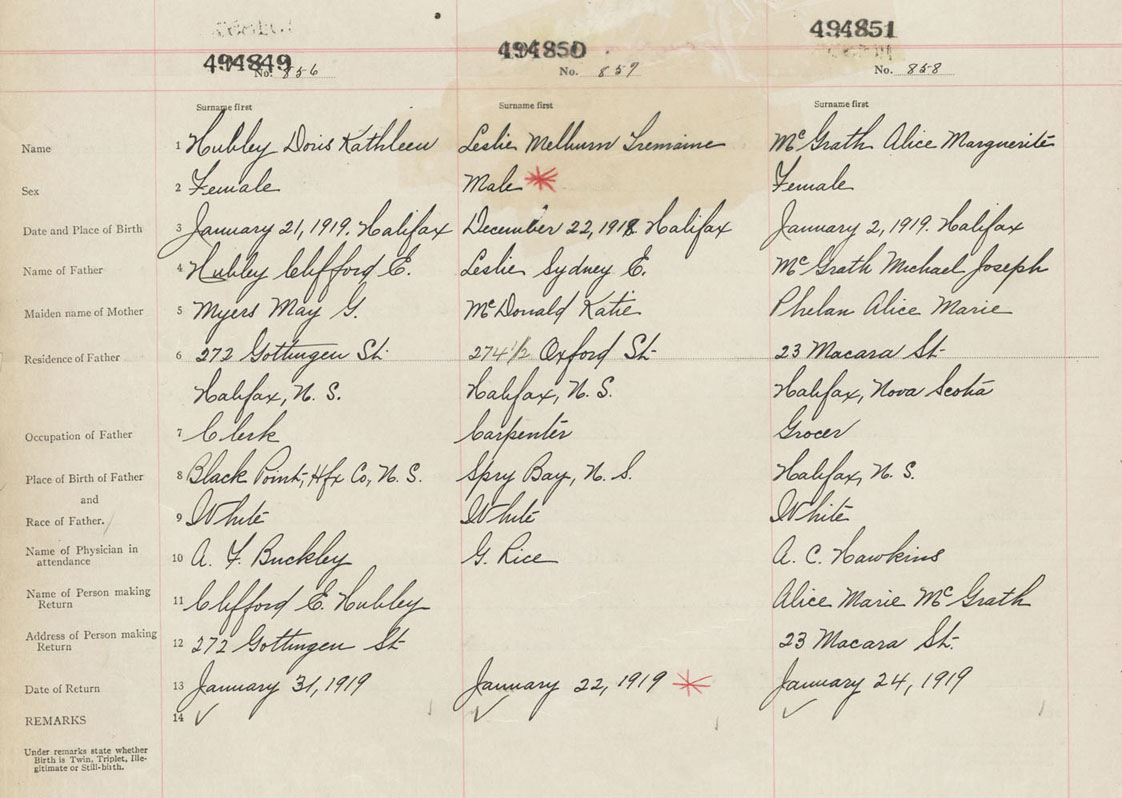 494849 494850 494851
No. 856 No. 857 No. 858
Surname first Surname first Surname first
Name 1 Hubley Doris Kathleen Leslie Melburn Tremaine McGrath Alice Marguerite
Sex 2 Female Male Female
Date and Place of Birth 3 January 21, 1919. Halifax December 22, 1918. Halifax January 2, 1919. Halifax
Name of Father 4 Hubley Clifford E. Leslie Sydney E. McGrath Michael Joseph
Maiden name of Mother 5 Myers May G. McDonald Katie Phelan Alice Marie
Residence of Father 6 272 Gottingen St. 274 1/2 Oxford St 23 Macara St
Halifax, N. S. Halifax, N. S. Halifax, Nova Scotia
Occupation of Father 7 Clerk Carpenter Grocer
Place of Birth of Father 8 Black Point, Hfx Co, N. S. Spry Bay, N. S. Halifax, N. S.
and
Race of Father. 9 White White White
Name of Physician in attendance 10 A. F. Buckley G. Rice A. C. Hawkins
Name of Person making Return 11 Clifford E. Hubley Alice Marie McGrath
Address of Person making Return 12 272 Gottingen St 23 Macara St.
Date of Return 13 January 31, 1919 January 22, 1919 January 24, 1919
REMARKS 14
Under remarks state whether
Birth is Twin, Triplet, Ille-
gitimate or Still-birth.